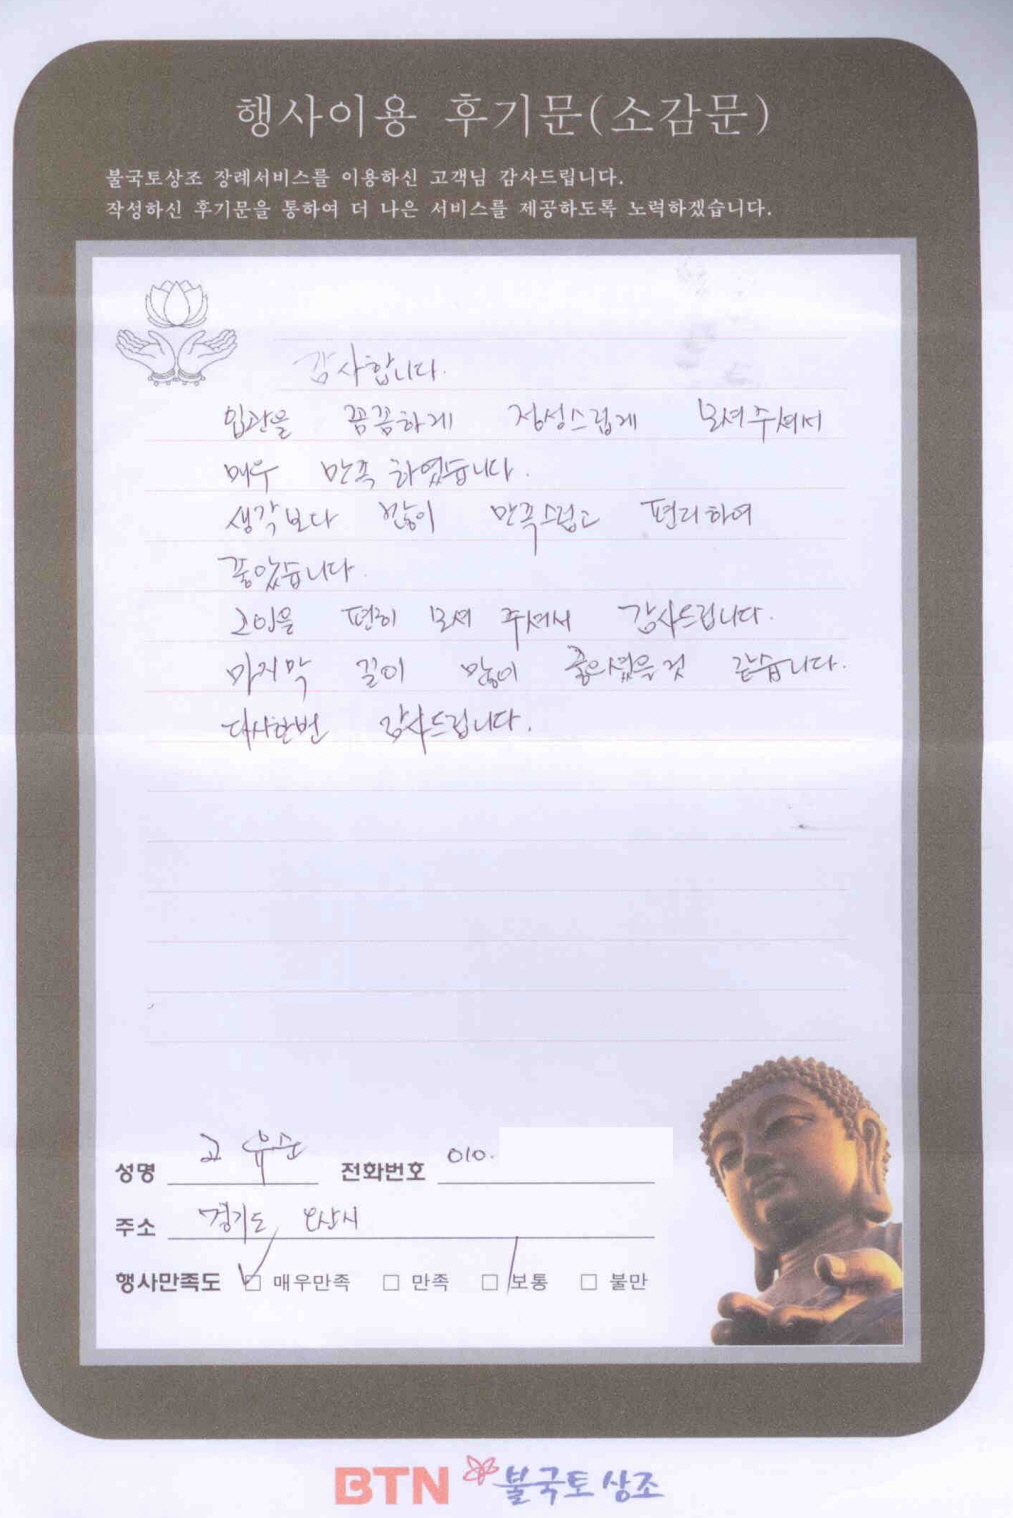 행사이용 후기문(소감문)
불국토상조 장례서비스를 이용하신 고객님 감사드립니다.
작성하신 후기문을 통하여 더 나은 서비스를 제공하도록 노력하겠습니다.
감사합니다.
입관을 꼼꼼하게 정성스럽게 모셔주셔서
매우 만족 하였습니다.
생각보다 많이 만족스럽고 편리하여
좋았습니다.
고인을 편히 모셔 주셔서 감사드립니다.
마지막 길이 많이 좋으셨을 것 같습니다.
다시한번 감사드립니다.
성명 고 유순 전화번호 010.
주소 경기도 오산시
행사만족도 ☑ 매우만족 □ 만족 □ 보통 □ 불만
BTN 불국토 상조